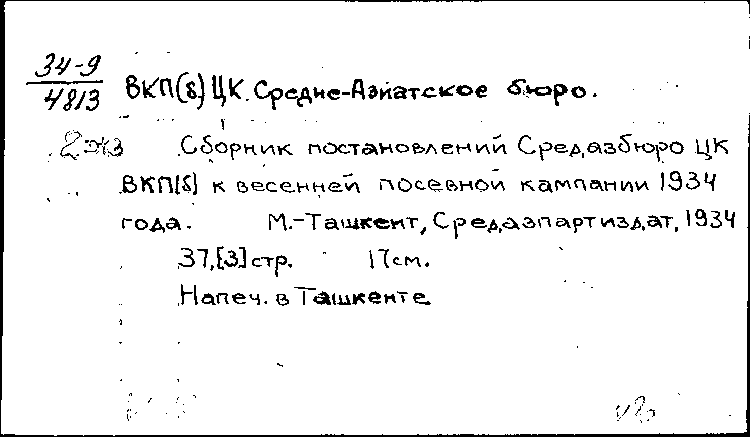 34-9
4813
ВКП(б) ЦК. Средне-Азиатское бюро.
2 экз
Сборник постановлений Средазбюро ЦК
ВКП[б] к весенней посевной кампании 1934
года. М.-Ташкент, Средазпартиздат, 1934
37,[3] стр. 17см.
Напеч. в Ташкенте.